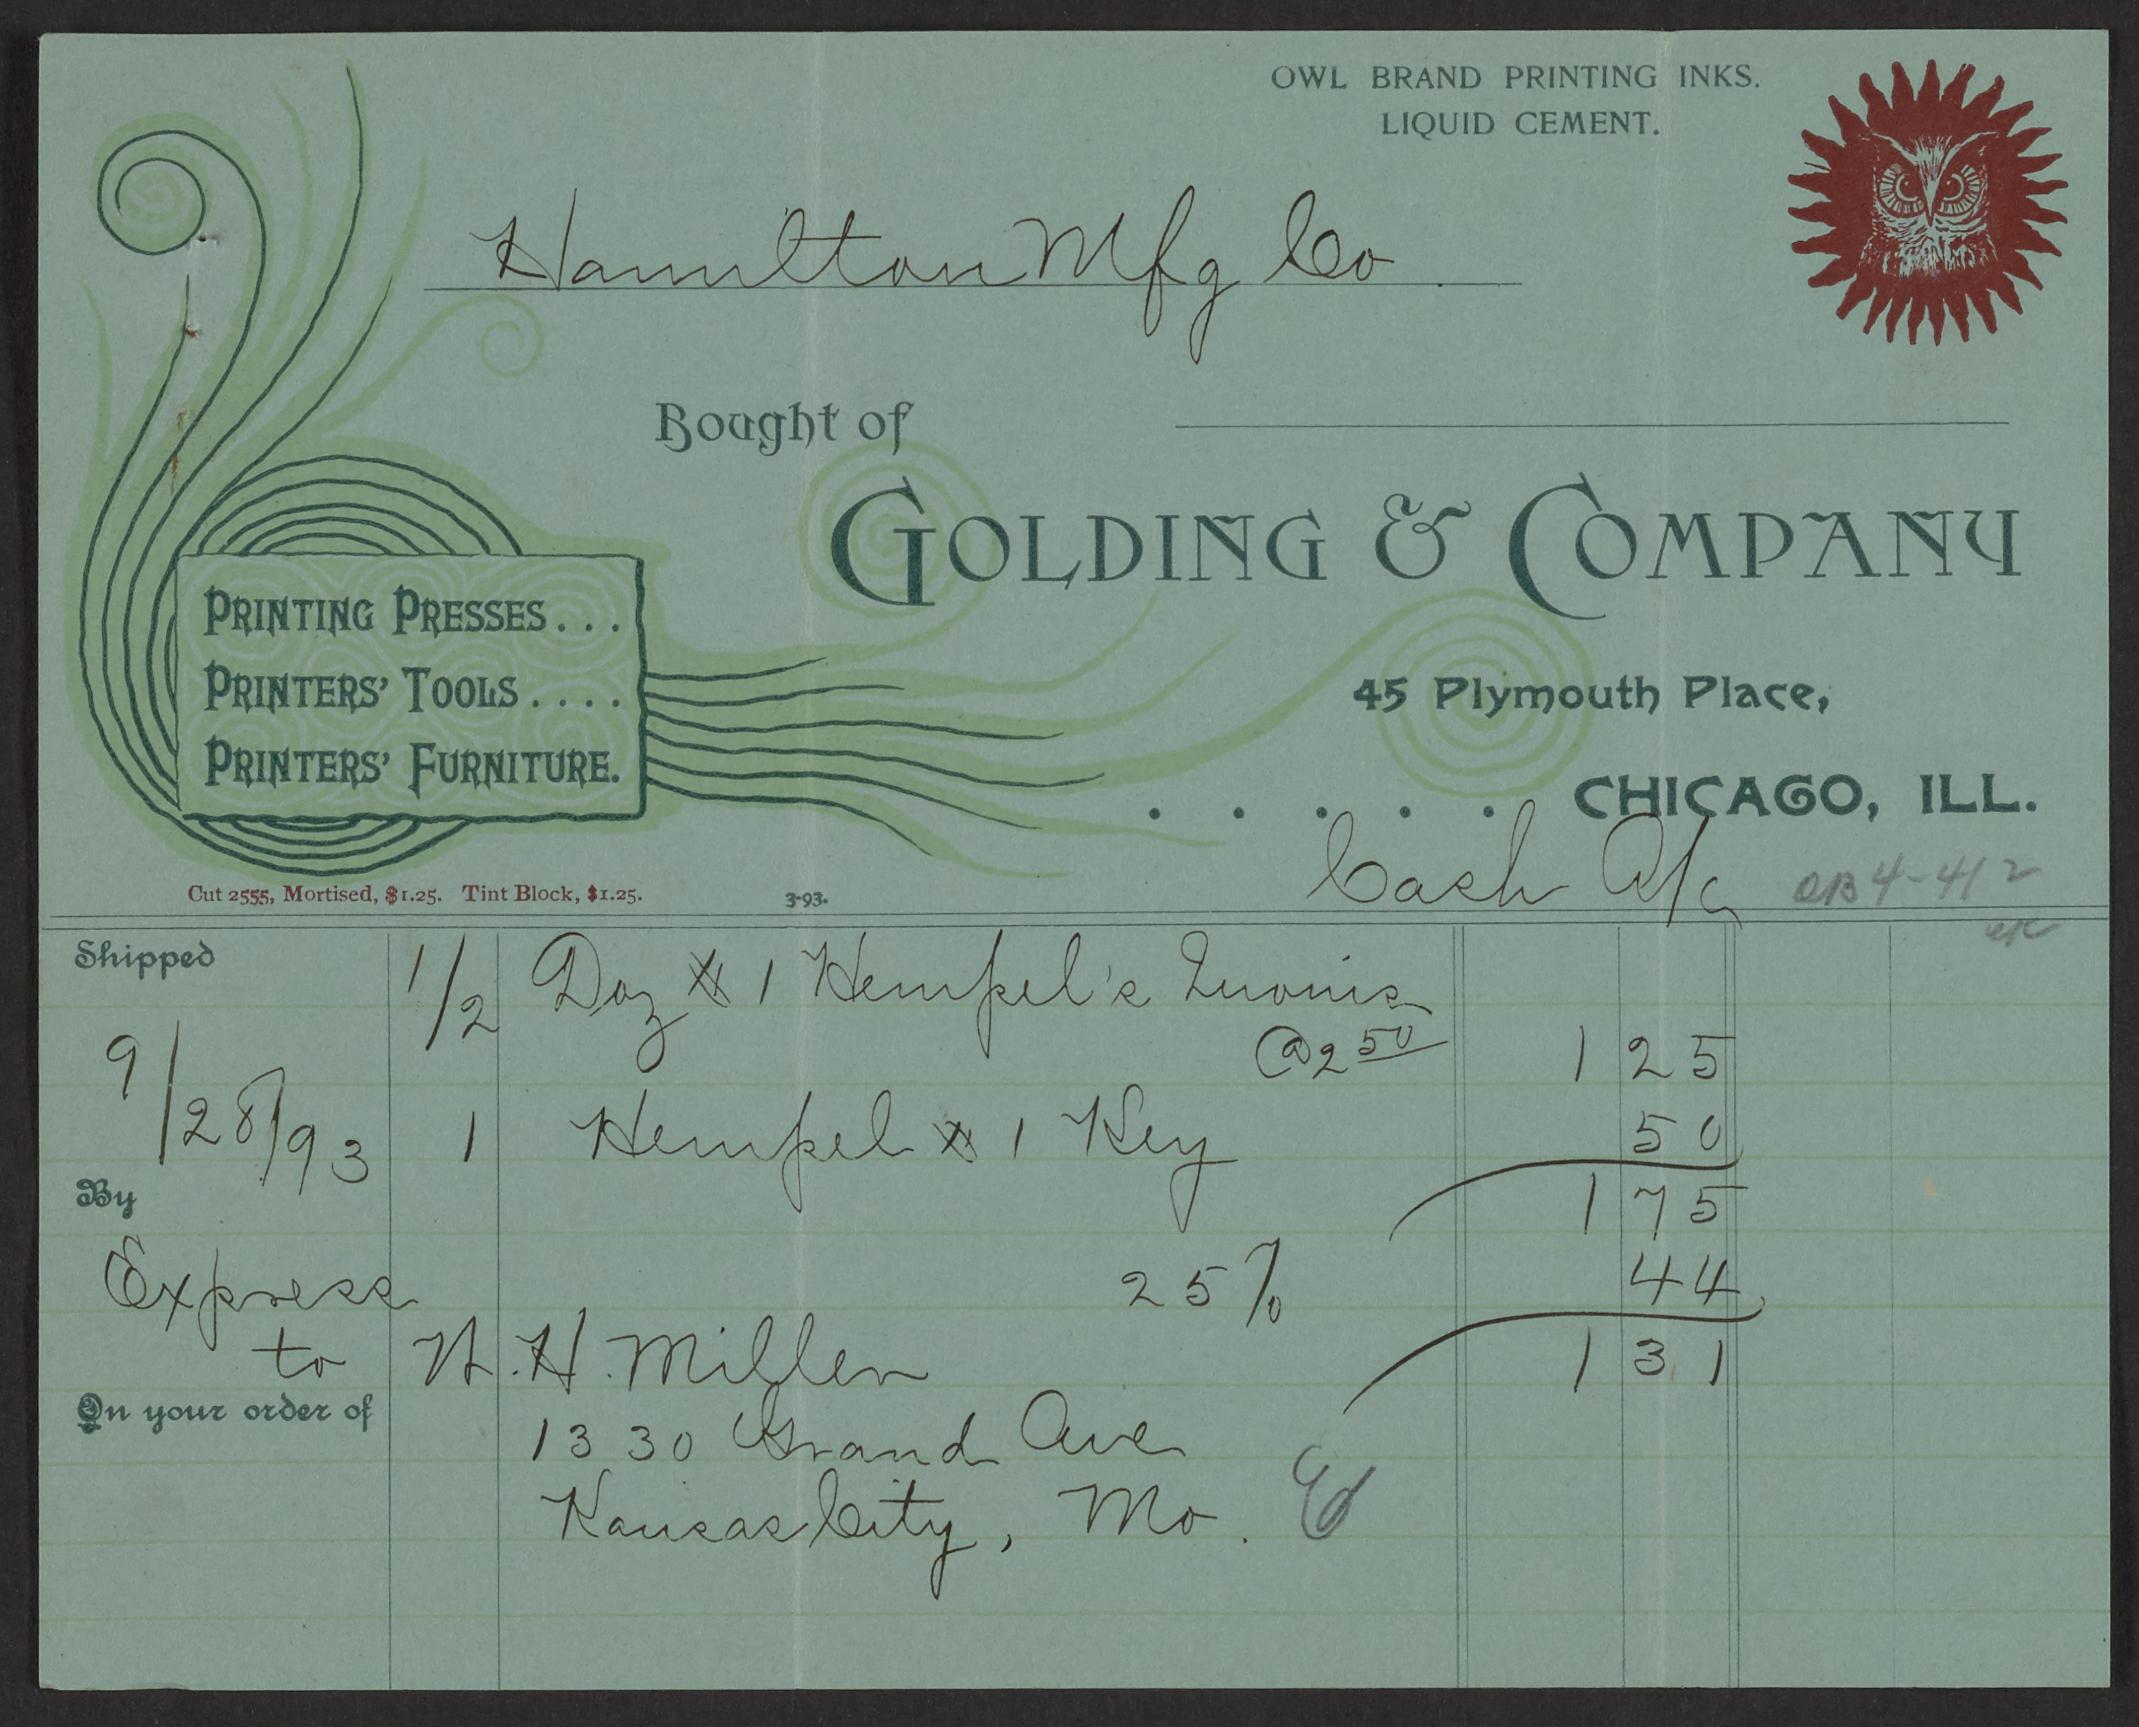 OWL BRAND PRINTING INKS.
LIQUID CEMENT.
Hamilton Mfg Co
Bought of
GOLDING & COMPANY
PRINTING PRESSES...
PRINTERS' TOOLS....
PRINTERS' FURNITURE.
45 Plymouth Place,
..... CHICAGO, ILL.
Cash A/c
Cut 2555, Mortised, $1.25. Tint Block, $1.25.
3-93.
Shipped
1/2 Doz # 1 Hempel's Quoins
@ 2 50 1 25
9/28/93
1 Hempel # 1 Key 50
By
1 75
Express 25% 44
to W. H. Miller 1 31
On your order of
1330 Grand Ave
Kansas City, Mo.